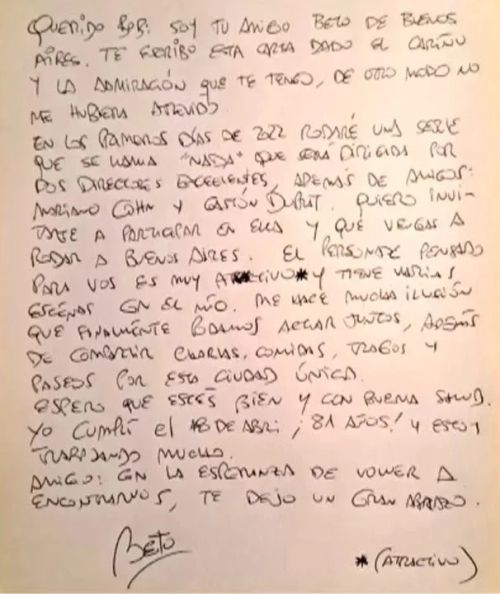 QUERIDO BOB: SOY TU AMIGO BETO DE BUENOS
AIRES. TE ESCRIBO ESTA CARTA DADO EL CARIÑO
Y LA ADMIRACIÓN QUE TE TENGO, DE OTRO MODO NO
ME HUBIERA ATREVIDO
EN LOS PRIMEROS DÍAS DE 2022 RODARÉ UNA SERIE
QUE SE LLAMA "NADA" QUE SERÁ DIRIGIDA POR
DOS DIRECTORES EXCELENTES, ADEMÁS DE AMIGOS:
MARIANO COHN Y GASTÓN DUPRAT. QUIERO INVI-
TARTE A PARTICIPAR EN ELLA Y QUE VENGAS A
RODAR A BUENOS AIRES. EL PERSONAJE PENSADO
PARA VOS ES MUY ATRACTIVO* Y TIENE VARIAS
ESCENAS EN EL MÍO. ME HACE MUCHA ILUSIÓN
QUE FINALMENTE PODAMOS ACTUAR JUNTOS, ADEMÁS
DE COMPARTIR CHARLAS, COMIDAS, TRAGOS Y
PASEOS POR ESTA CIUDAD ÚNICA.
ESPERO QUE ESTÉS BIEN Y CON BUENA SALUD.
YO CUMPLÍ EL DE ABRIL ¡81 AÑOS! Y ESTOY
TRABAJANDO MUCHO.
AMIGO: EN LA ESPERANZA DE VOLVER A
ENCONTRARNOS, TE DEJO UN GRAN ABRAZO.
BETO
*(ATRACTIVO)